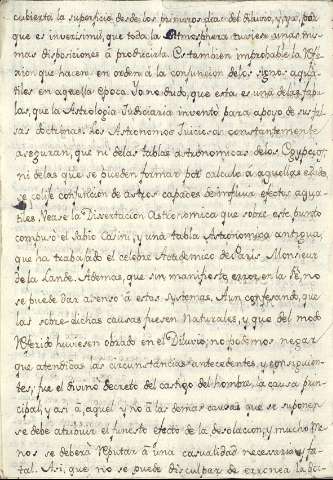 cubierta la superficie desde los primeros dias del diluvio, y ya, por
que es inverisimil, que toda la Atmosphera tuviese unas mis-
mas disposiciones à producirla. Es tambien improbable la refle-
xion que hacen en orden à la conjuncion de los signos aqua-
tiles en aquella epoca. Yo no dudo, que esta es una de las fabu-
las, que la Astrologia Judiciaria inventò para apoyo de sus fal-
sas doctrinas. Los Astronomos Juiciosos constantemente
aseguran, que ni de las tablas astronomicas de los Egypcios,
ni de las que se pueden formar por calculo à aquellas edades,
se colige constitucion de astros capaces de influir efectos aqua-
tiles. Vease la Dissertacion Astronomica que sobre este punto
compuso el sabio Casini, y una tabla Astronomica antigua,
que ha trabajado el celebre Academico de Paris Monsieur
de la Lande. Ademas, que sin manifiesto error en la Fè, no
se puede dar asenso à estas Systemas. Aun confesando, que
las sobre-dichas causas fuesen Naturales, y que del modo
referido huviesen obrado en el Diluvio, no podemos negar
que atendidas las circunstancias antecedentes, y consiguien-
tes, fue el divino decreto del castigo del hombre, la causa prin-
cipal, y asi à aquel y no à las demas causas que se suponen
se debe atribuir el funesto efecto de la desolacion, y mucho me-
nos se deberà reputar à una casualidad necesaria, y fa-
tal. Asi, que no se puede disculpar de erronea la doc-